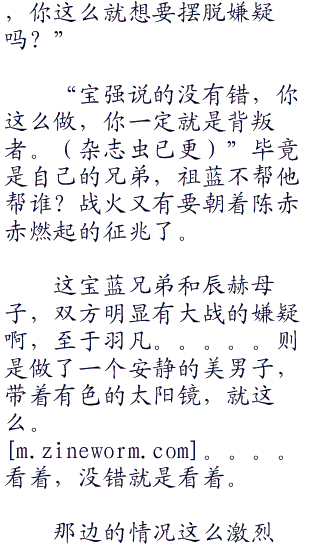 ，你这么就想要摆脱嫌疑
吗？”
“宝强说的没有错，你
这么做，你一定就是背叛
者。（杂志虫已更）”毕竟
是自己的兄弟，祖蓝不帮他
帮谁？战火又有要朝着陈赤
赤燃起的征兆了。
这宝蓝兄弟和辰赫母
子，双方明显有大战的嫌疑
啊，至于羽凡。。。。。则
是做了一个安静的美男子，
带着有色的太阳镜，就这
么。
[m.zineworm.com]。。。。
看着，没错就是看着。
那边的情况这么激烈